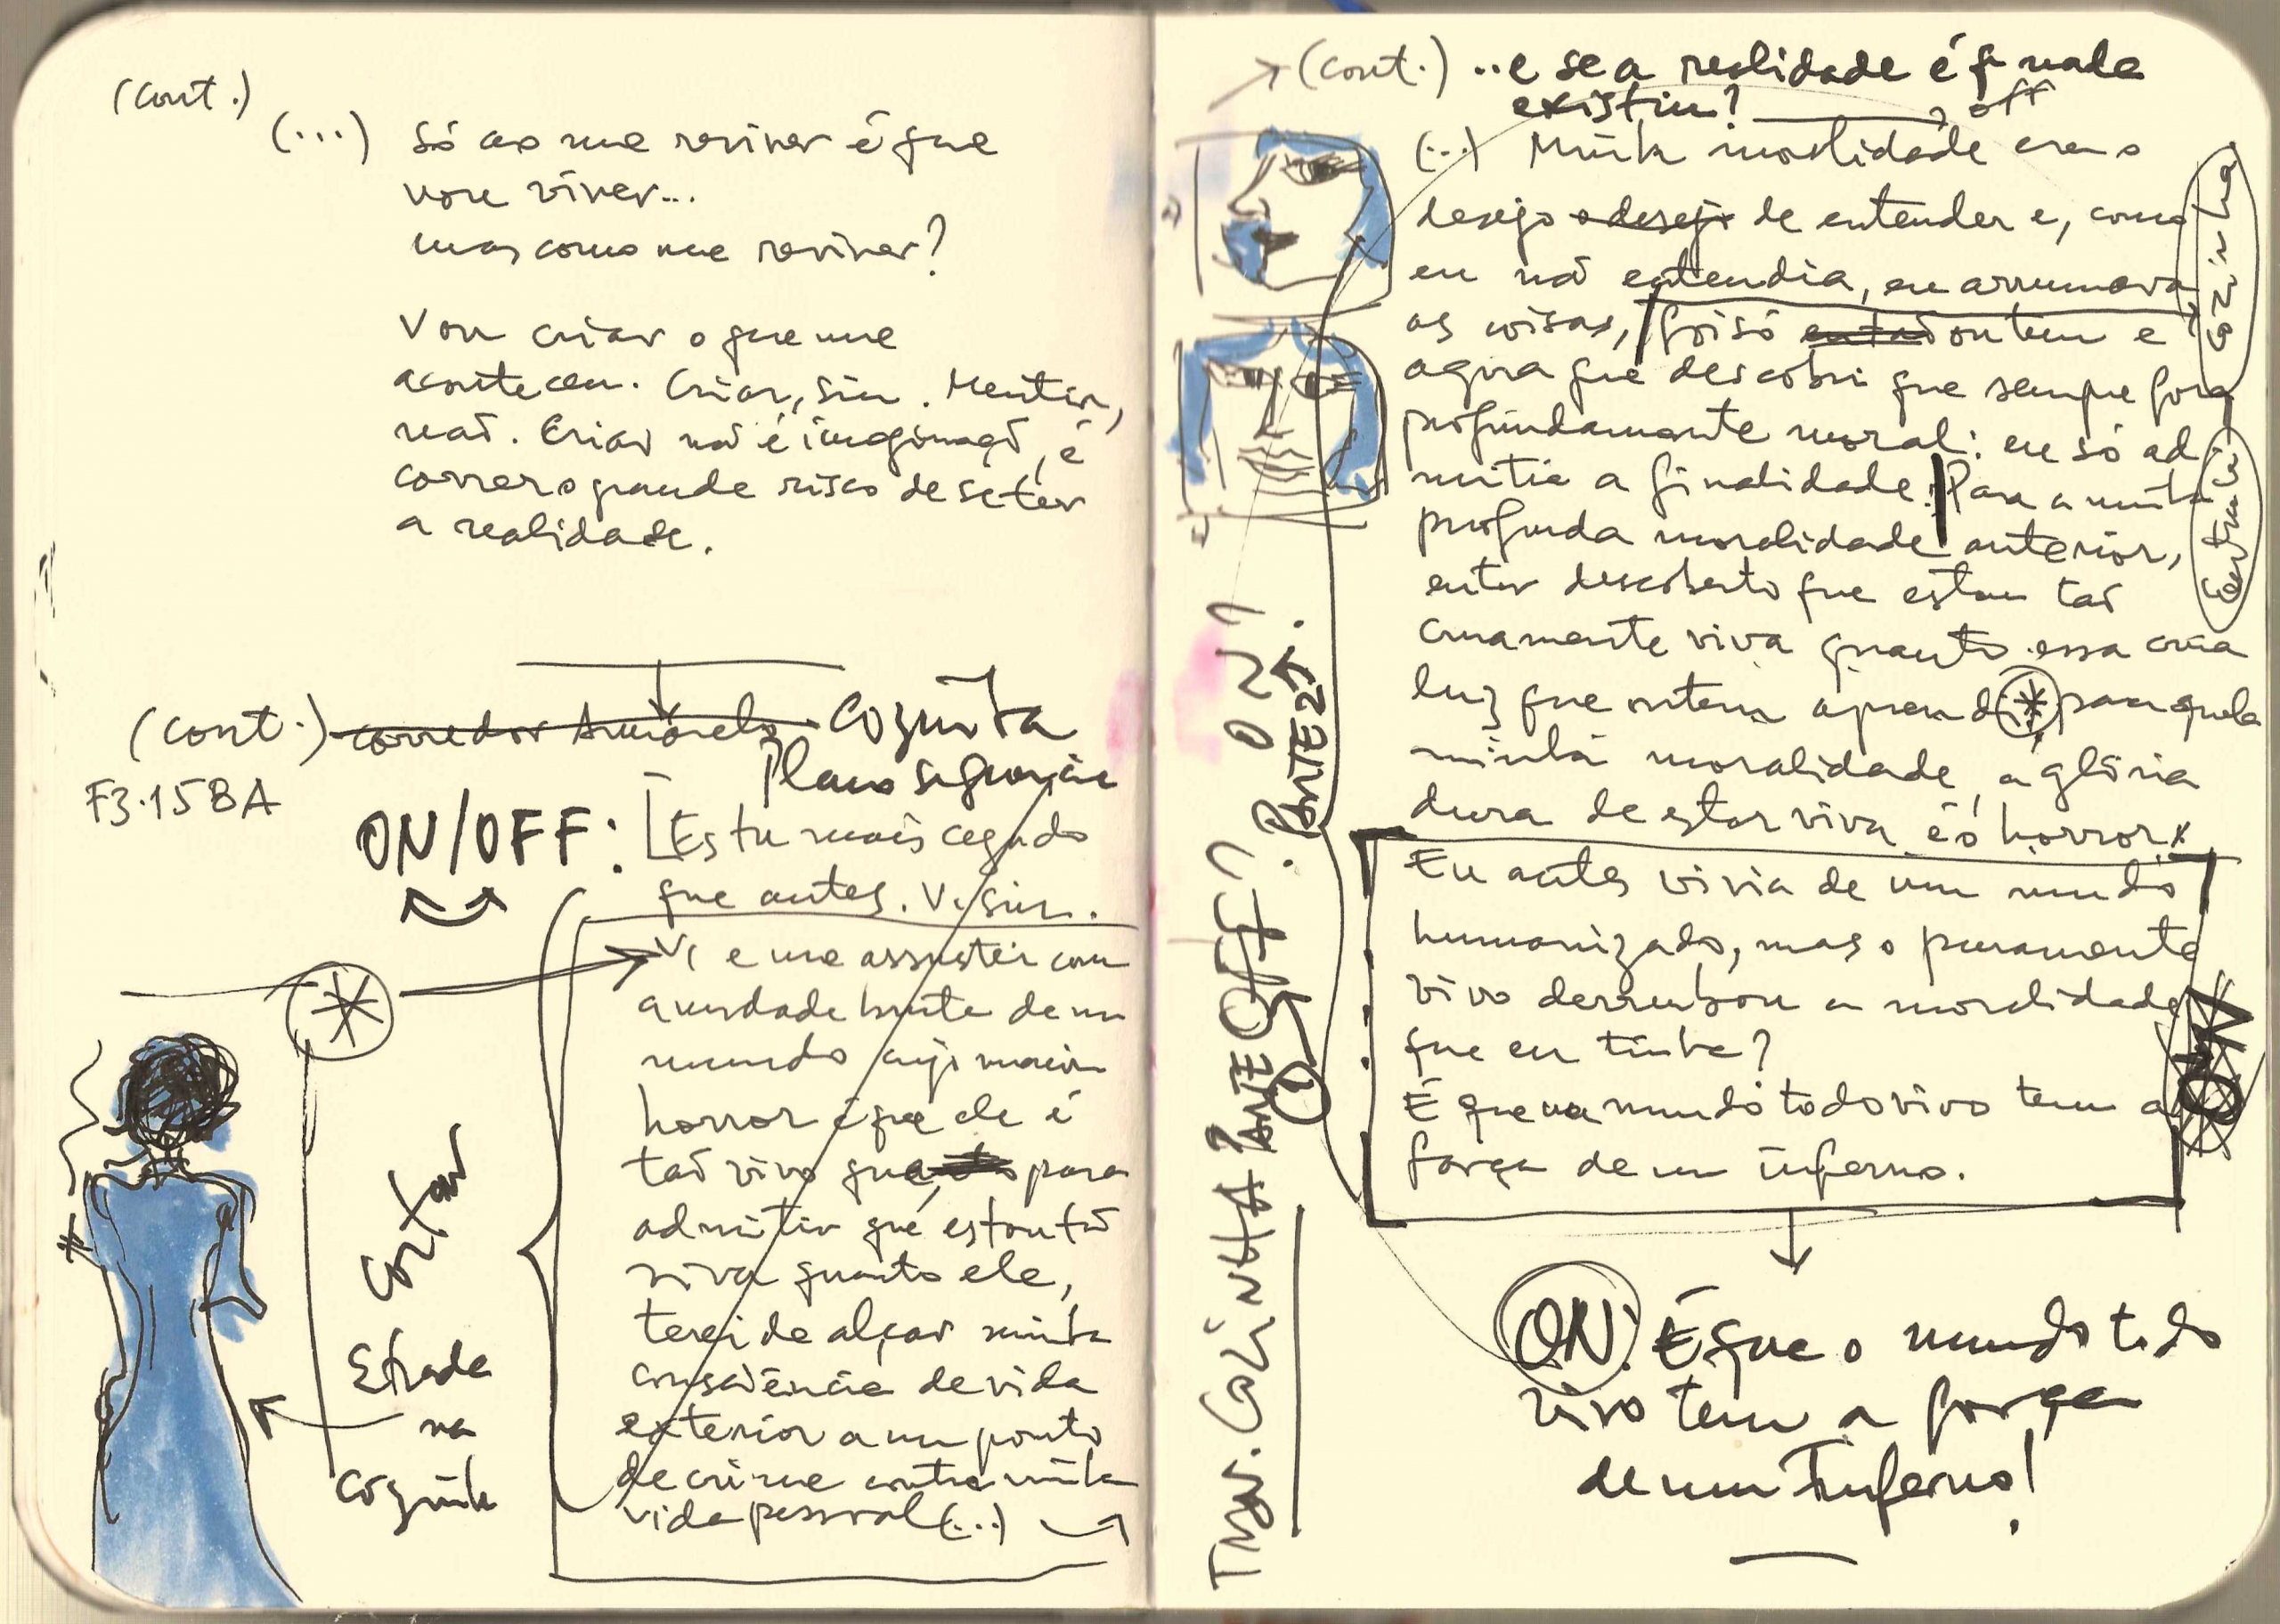 (cont.)
(...) Só ao me reviver é que
vou viver...
mas como me reviver?
Vou criar o que me
aconteceu. Criar, sim. Mentir,
não. Criar não é imaginação, é
correr o grande risco de se ter
a realidade.
(cont.) corredor Amarelo Cozinha
Plano sequência
F3.15BA
ON/OFF: [Estou mais cega do
que antes. Vi, sim.
Vi e me assustei com
a verdade bruta de um
mundo cujo maior
horror é que ele é
tão vivo que, para
admitir que estou tão
viva quanto ele,
terei de alçar minha
consciência de vida
exterior a um ponto
de crime contra minha
vida pessoal (...)
Cortar
Entrada
na
Cozinha
(cont.) ..e se a realidade é q nada
existiu? off
(...) Minha moralidade era o
desejo o desejo de entender e, como
eu não entendia, eu arrumava
as coisas, foi só então ontem e
agora que descobri que sempre fora
profundamente moral: eu só ad
mitia a finalidade. Para a minha
profunda moralidade anterior,
eu ter descoberto que estou tão
cruamente viva quanto essa crua
luz que ontem aprendi * para aquela
minha moralidade, a glória
dura de estar viva é o horror.
Eu antes vivia de um mundo
humanizado, mas o puramente
vivo derrubou a moralidade
que eu tinha?
É que um mundo todo vivo tem a
força de um inferno.
ON
ON: É que o mundo todo
vivo tem a força
de um Inferno!
COZINHA PARTE OFF? 1
ON? PARTE 2
cozinha